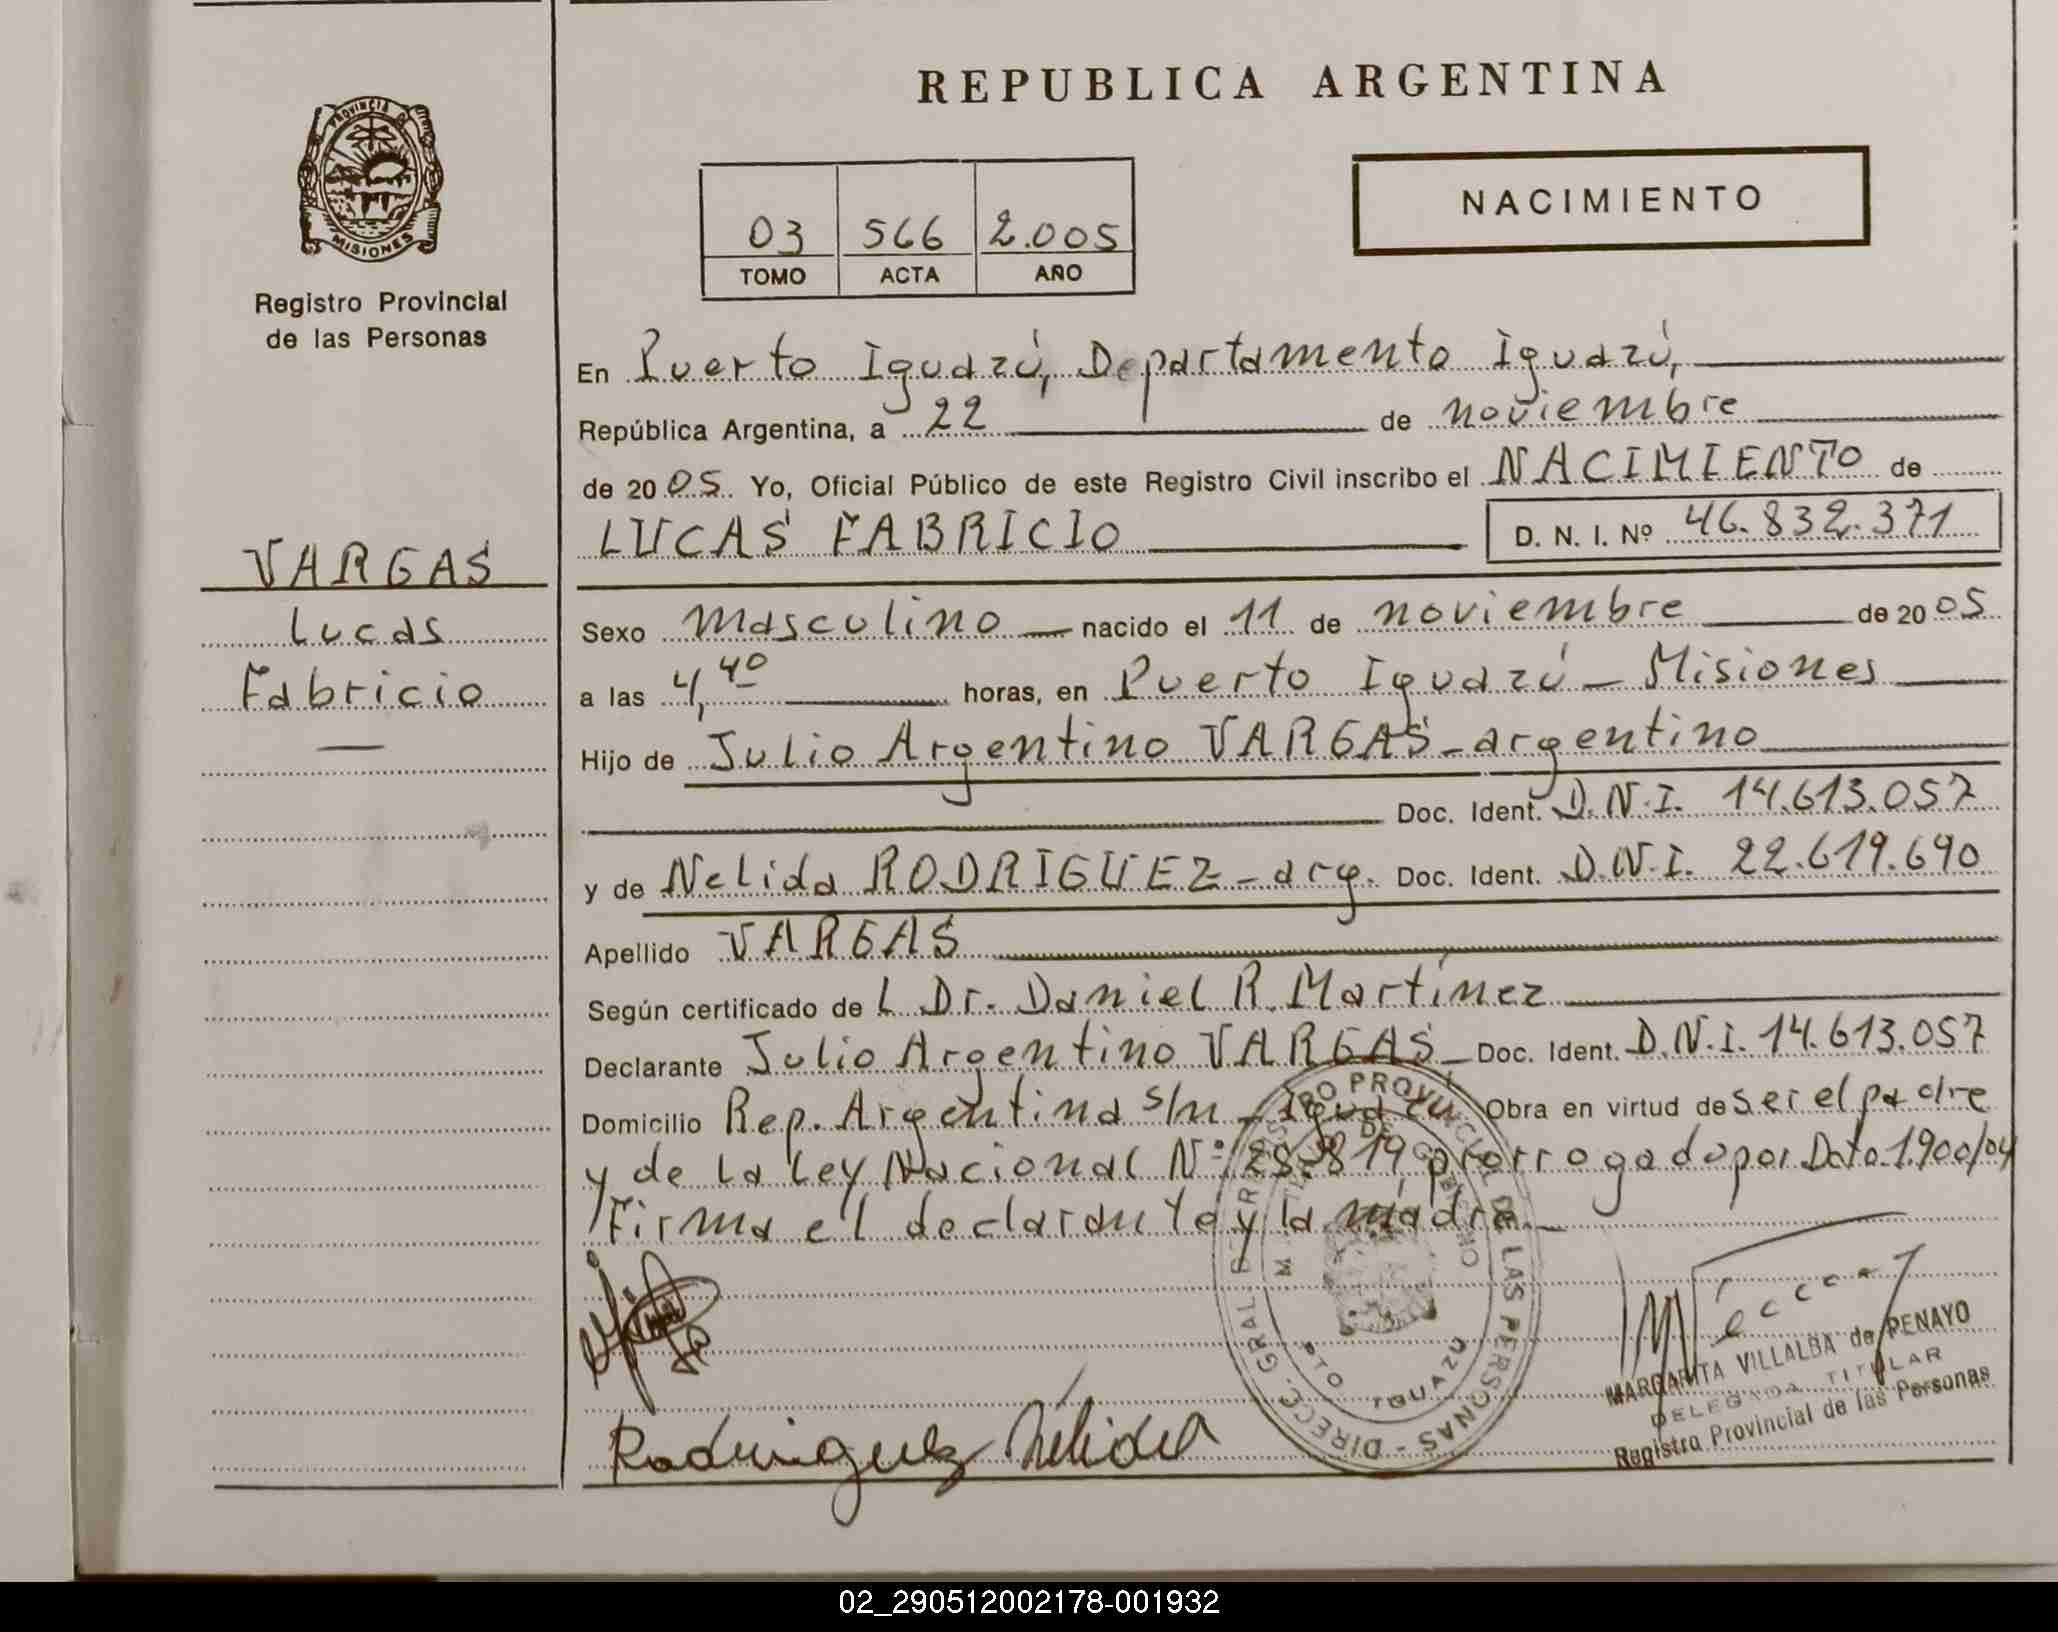 REPUBLICA ARGENTINA
PROVINCIA DE
MISIONES
Registro Provincial
de las Personas
NACIMIENTO
03 566 2.005
TOMO ACTA AÑO
En Puerto Iguazú, Departamento Iguazú,
República Argentina, a 22 de noviembre
de 2005. Yo, Oficial Público de este Registro Civil inscribo el NACIMIENTO de
LUCAS FABRICIO D. N. I. Nº 46.832.371
VARGAS
Lucas
Fabricio
Sexo masculino nacido el 11 de noviembre de 2005
a las 4,40 horas, en Puerto Iguazú - Misiones
Hijo de Julio Argentino VARGAS - argentino
Doc. Ident. D.N.I. 14.613.057
y de Nelida RODRIGUEZ - arg. Doc. Ident. D.N.I. 22.619.690
Apellido VARGAS
Según certificado de L Dr. Daniel R. Martínez
Declarante Julio Argentino VARGAS - Doc. Ident. D.N.I. 14.613.057
Domicilio Rep. Argentina s/n - Iguazú Obra en virtud de ser el padre
y de la Ley Nacional Nº 25.819, prorrogado por Dcto. 1.900/04
Firma el declarante y la madre.
Rodriguez Nélida
MARGARITA VILLALBA de PENAYO
DELEGADA TITULAR
Registro Provincial de las Personas
DIRECC. GRAL. REGISTRO PROVINCIAL DE LAS PERSONAS
PTO IGUAZU
02_290512002178-001932